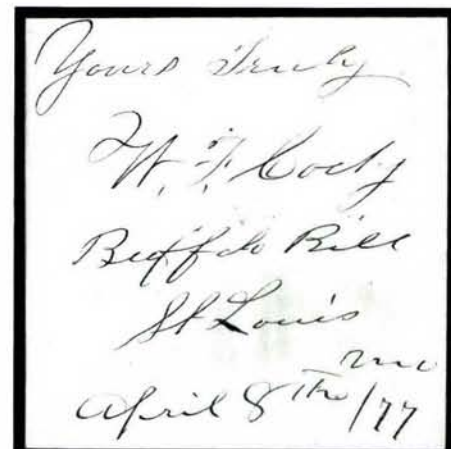 Yours Truly
W. F. Cody
Buffalo Bill
St Louis
Mo
April 8th /77